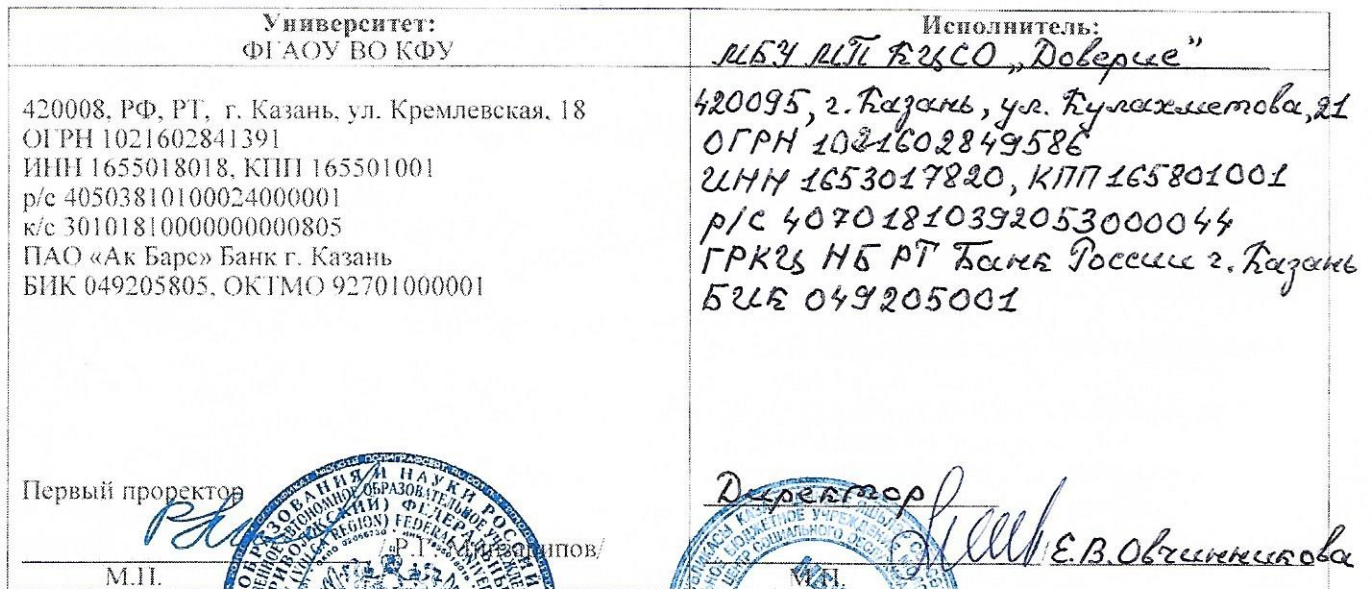 Университет:
ФГАОУ ВО КФУ
420008, РФ, РТ, г. Казань, ул. Кремлевская, 18
ОГРН 1021602841391
ИНН 1655018018, КПП 165501001
р/с 40503810100024000001
к/с 30101810000000000805
ПАО «Ак Барс» Банк г. Казань
БИК 049205805, ОКТМО 92701000001
Первый проректор
/Р.Г. Минзарипов/
М.П.
Исполнитель:
МБУ МП КЦСО „Доверие"
420095, г. Казань, ул. Кулахметова, 21
ОГРН 1021602849586
ИНН 1653017820, КПП 165801001
р/с 40701810392053000044
ГРКЦ НБ РТ Банк России г. Казань
БИК 049205001
Директор
Е.В. Овчинникова
М.П.